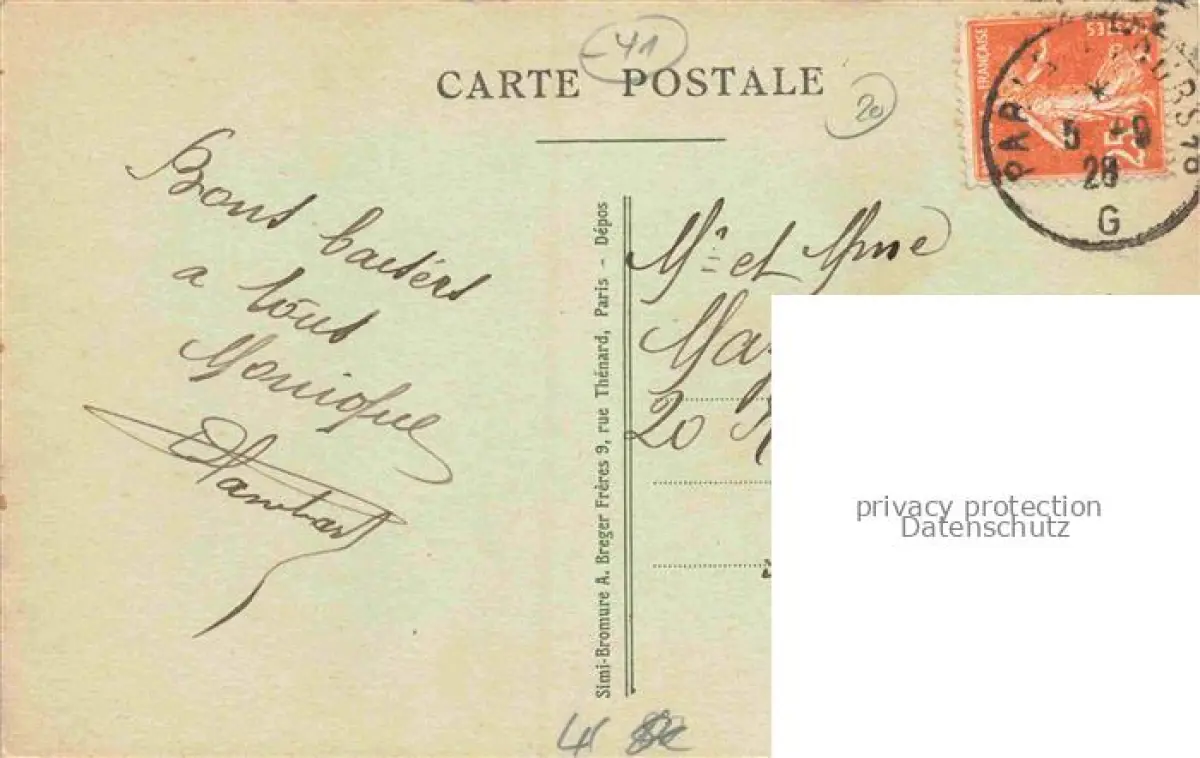 41
CARTE POSTALE
20
FRANÇAISE
25
PARIS
5 - 9
28
G
Bons baisers
a tous
Monique
Simi-Bromure A. Breger Frères 9, rue Thénard, Paris - Dépos
Mr et Mme
May
20
privacy protection
Datenschutz
41